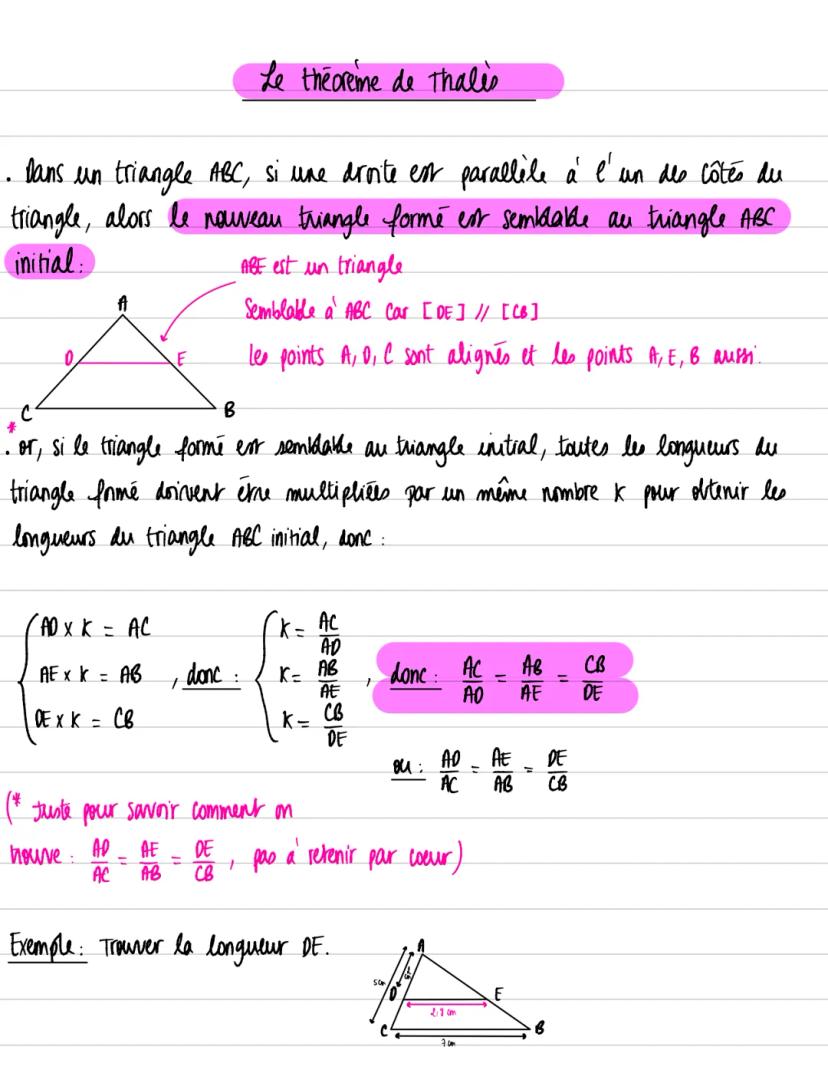 Le théorème de Thalès
. Dans un triangle ABC, si une droite est parallèle à l'un des côtés du
triangle, alors le nouveau triangle formé est semblable au triangle ABC
initial :
ABE est un triangle
Semblable à ABC car [DE] // [CB]
les points A, D, C sont alignés et les points A, E, B aussi.
A
D E
C B
*
. or, si le triangle formé est semblable au triangle initial, toutes les longueurs du
triangle formé doivent être multipliées par un même nombre K pour obtenir les
longueurs du triangle ABC initial, donc :
AD x K = AC
AE x K = AB
DE x K = CB
, donc :
K = AC/AD
K = AB/AE
K = CB/DE
, donc : AC/AD = AB/AE = CB/DE
ou : AD/AC = AE/AB = DE/CB
(* juste pour savoir comment on
trouve : AD/AC = AE/AB = DE/CB , pas à retenir par coeur)
Exemple : Trouver la longueur DE.
A
5cm
D E
2,8 cm
C B
7 cm